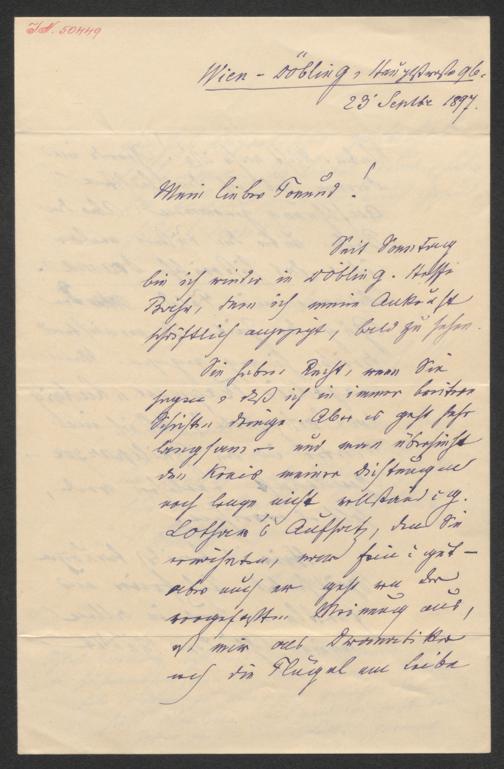 J.N. 50449
Wien - Döbling, Hauptstraße 96.
23 Septbr 1897.
Mein lieber Freund!
Seit Sonntag
bin ich wieder in Döbling. Hoffe
Bahr, dem ich meine Ankunft
schriftlich angezeigt, bald zu sehen.
Sie haben Recht, wenn Sie
sagen, daß ich in immer breitere
Schichten dringe. Aber es geht sehr
langsam - und man übersieht
den Kreis meiner Dichtungen
noch lange nicht vollständig.
Lothar's Aufsatz, den Sie
erwähnten, war fein & gut -
aber auch er geht von der
vorgefaßten Meinung aus,
es mir als Dramatiker
die Flügel am Leibe